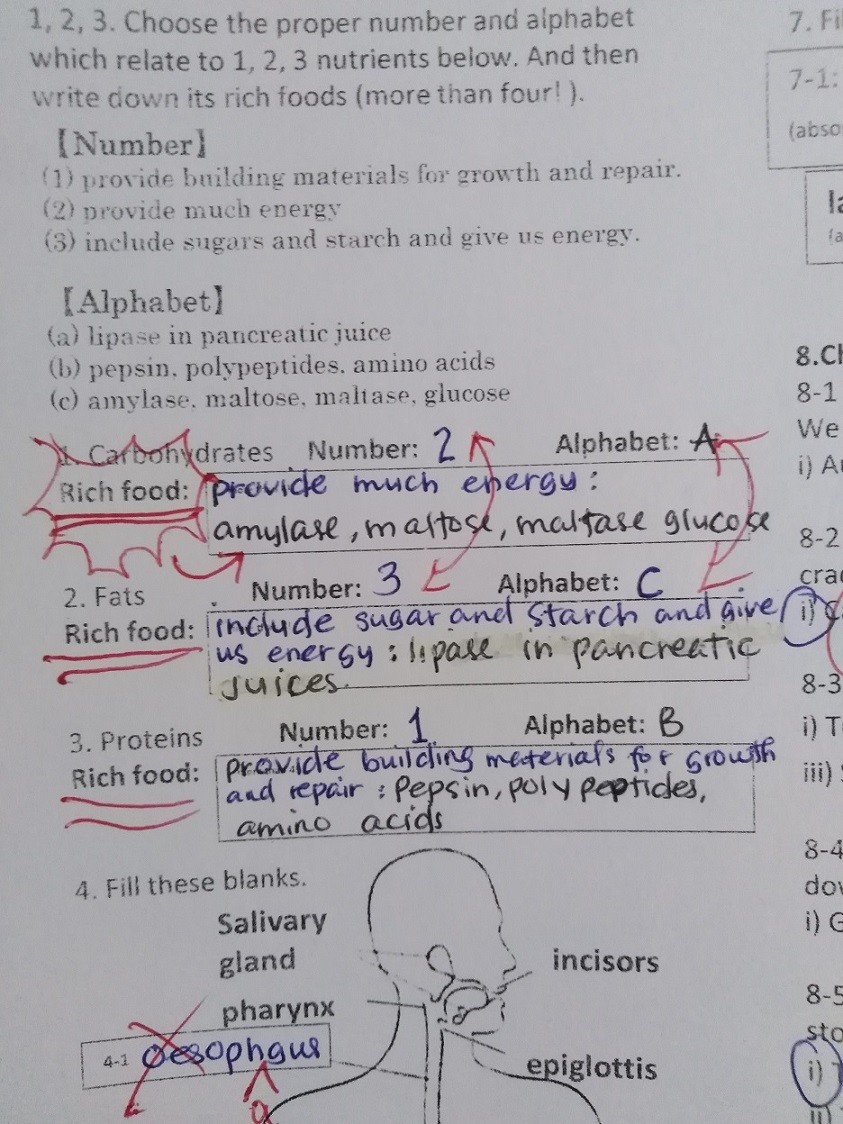 1, 2, 3. Choose the proper number and alphabet
which relate to 1, 2, 3 nutrients below. And then
write down its rich foods (more than four! ).
【Number】
(1) provide building materials for growth and repair.
(2) provide much energy
(3) include sugars and starch and give us energy.
【Alphabet】
(a) lipase in pancreatic juice
(b) pepsin, polypeptides. amino acids
(c) amylase, maltose, maltase, glucose
1. Carbohydrates Number: 2 Alphabet: A
Rich food: provide much energy:
amylase, maltose, maltase glucose
2. Fats Number: 3 Alphabet: C
Rich food: include sugar and starch and give
us energy: lipase in pancreatic
juices.
3. Proteins Number: 1 Alphabet: B
Rich food: provide building meterials for growth
and repair: Pepsin, poly peptides,
amino acids
4. Fill these blanks.
Salivary
gland
incisors
pharynx
4-1 oesophgus
a
epiglottis
7. Fi
7-1:
(abso
la
(a
8.Ch
8-1
We
i) A
8-2
cra
i)
8-3
i) T
iii)
8-4
dov
i) G
8-5
sto
i)
ii)